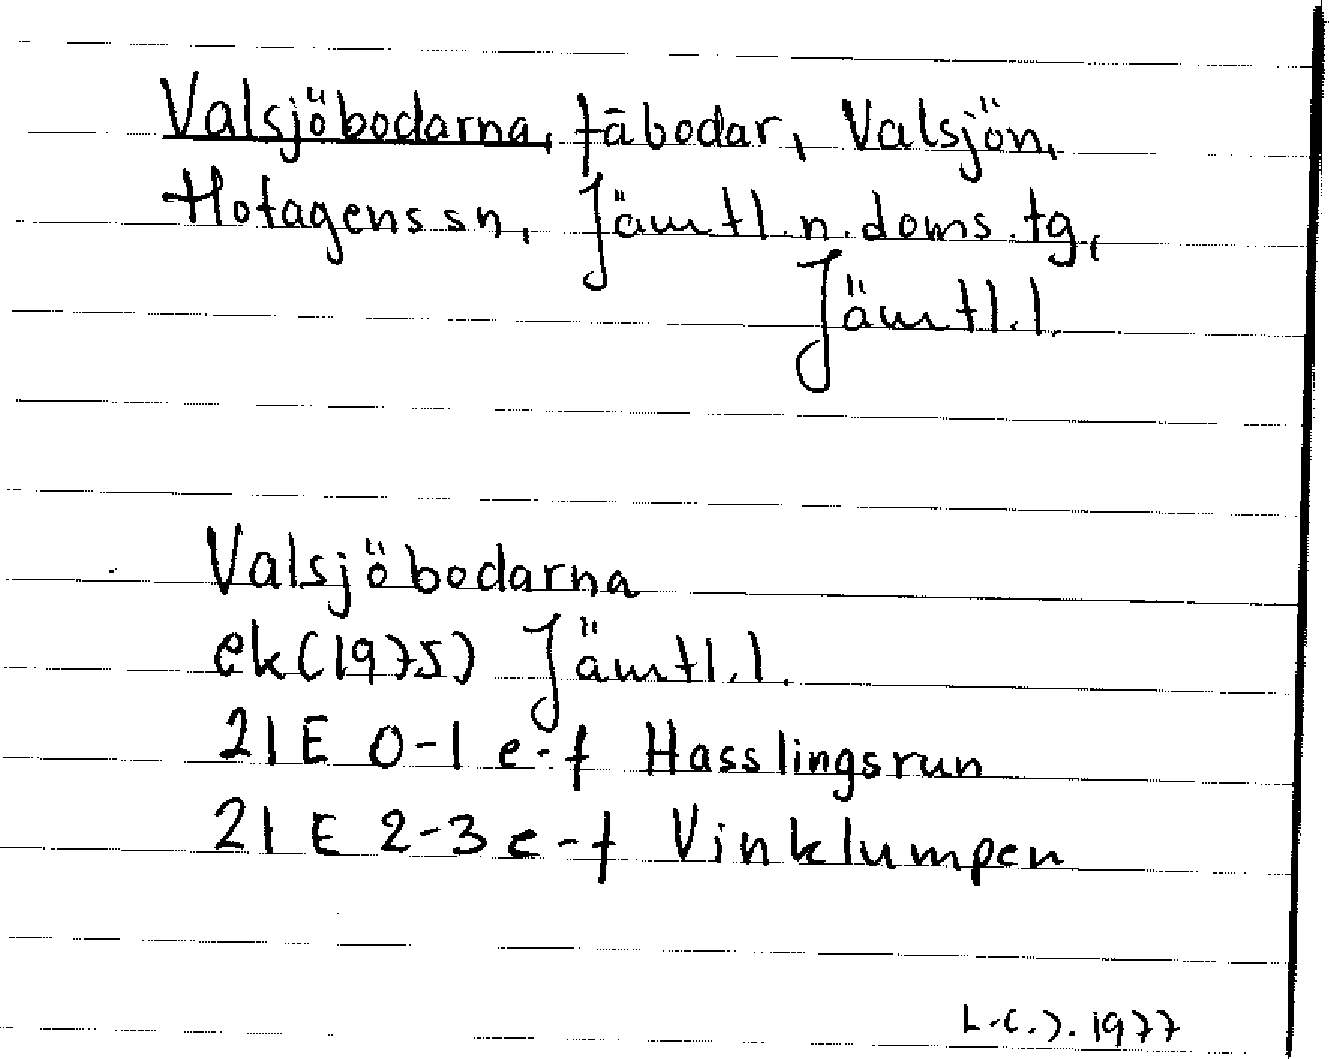 Valsjöbodarna, fäbodar, Valsjön,
Hotagens sn, Jämtl. n. doms. tg,
Jämtl. l.
Valsjöbodarna
ek (1975) Jämtl. l.
21 E 0-1 e-f Hasslingsrun
21 E 2-3 e-f Vinklumpen
L.C.J. 1977